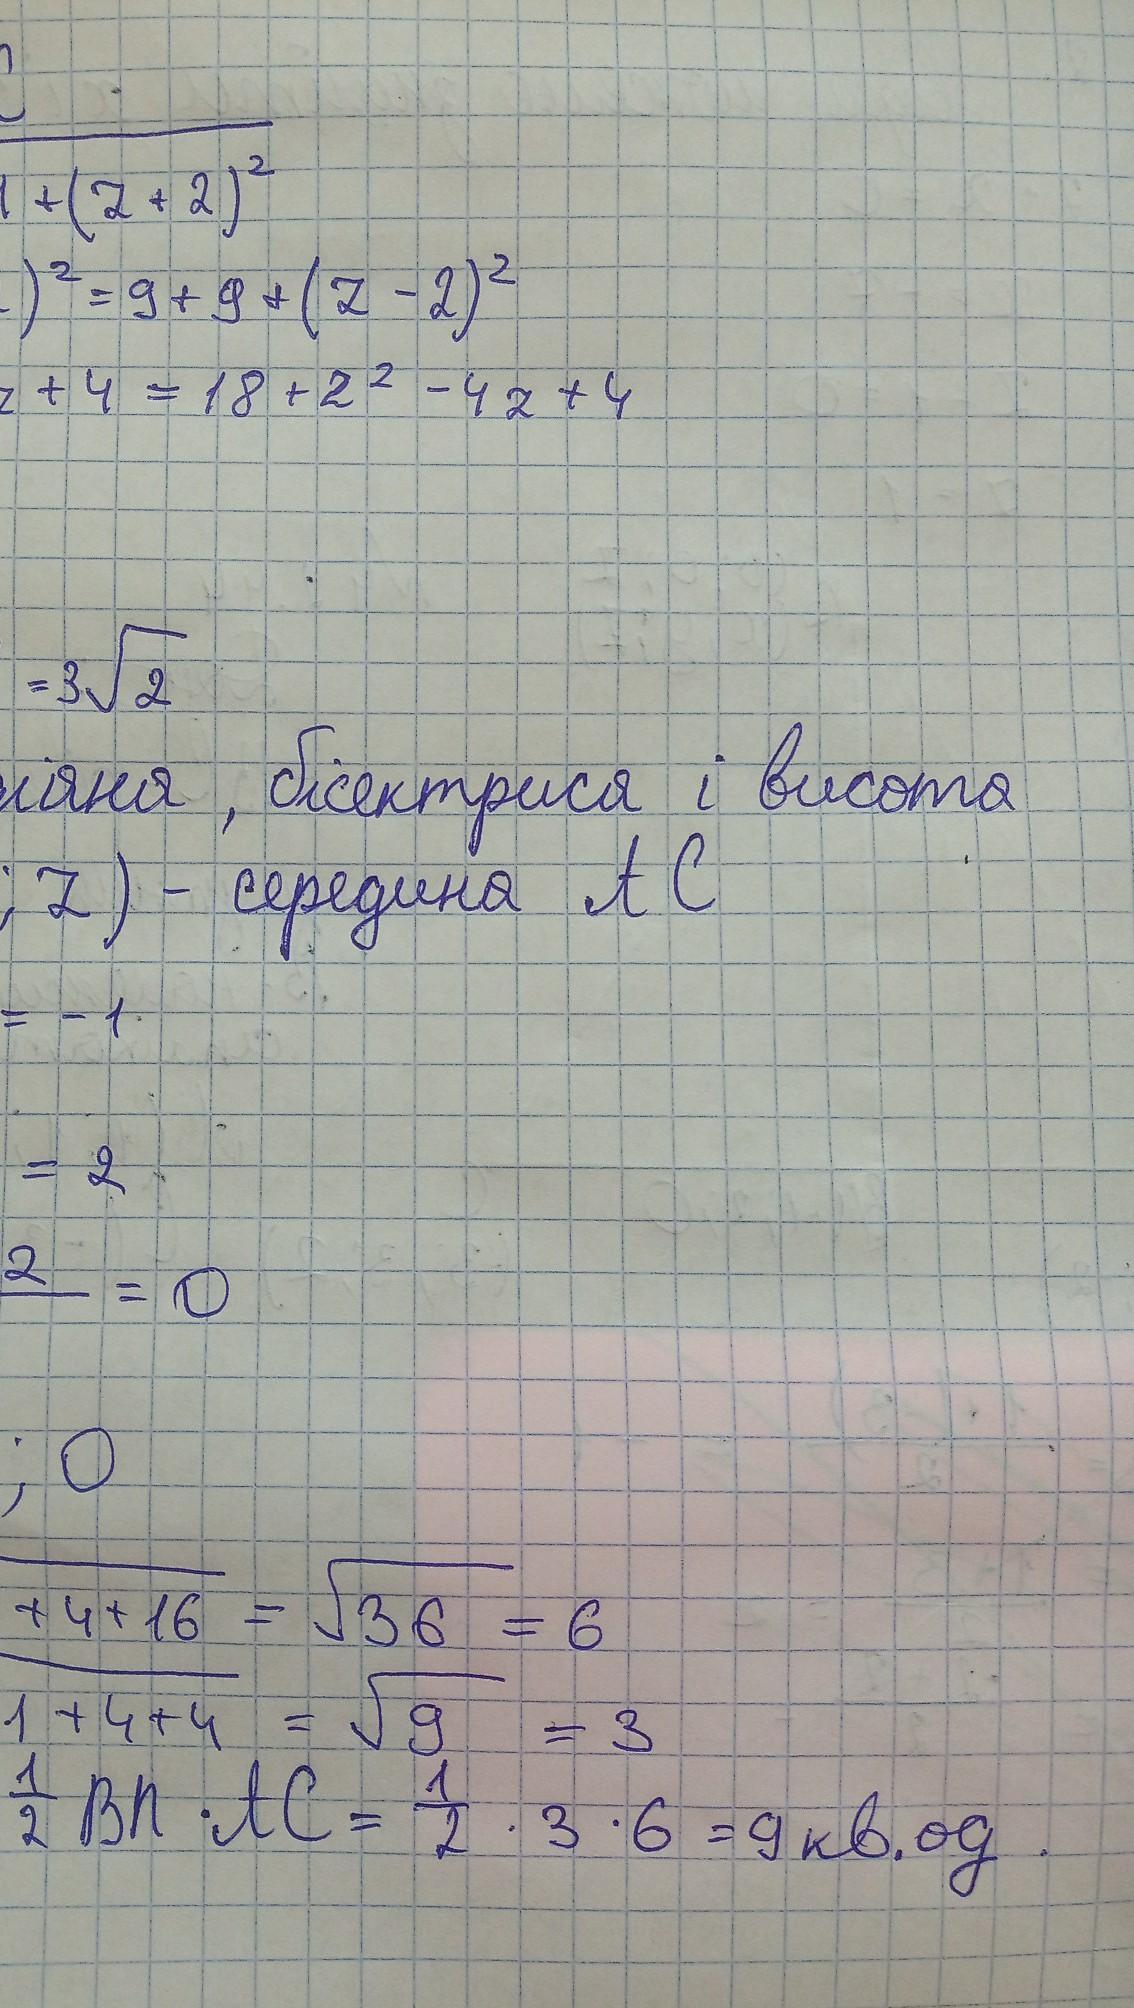 1 + (z + 2)²
)² = 9 + 9 + (z - 2)²
z + 4 = 18 + z² - 4z + 4
= 3√2
іана, бісектриса і висота
; z) - середина AC
= -1
= 2
2 = 0
; 0
+ 4 + 16 = √36 = 6
1 + 4 + 4 = √9 = 3
1/2 BK · AC = 1/2 · 3 · 6 = 9 кв. од.